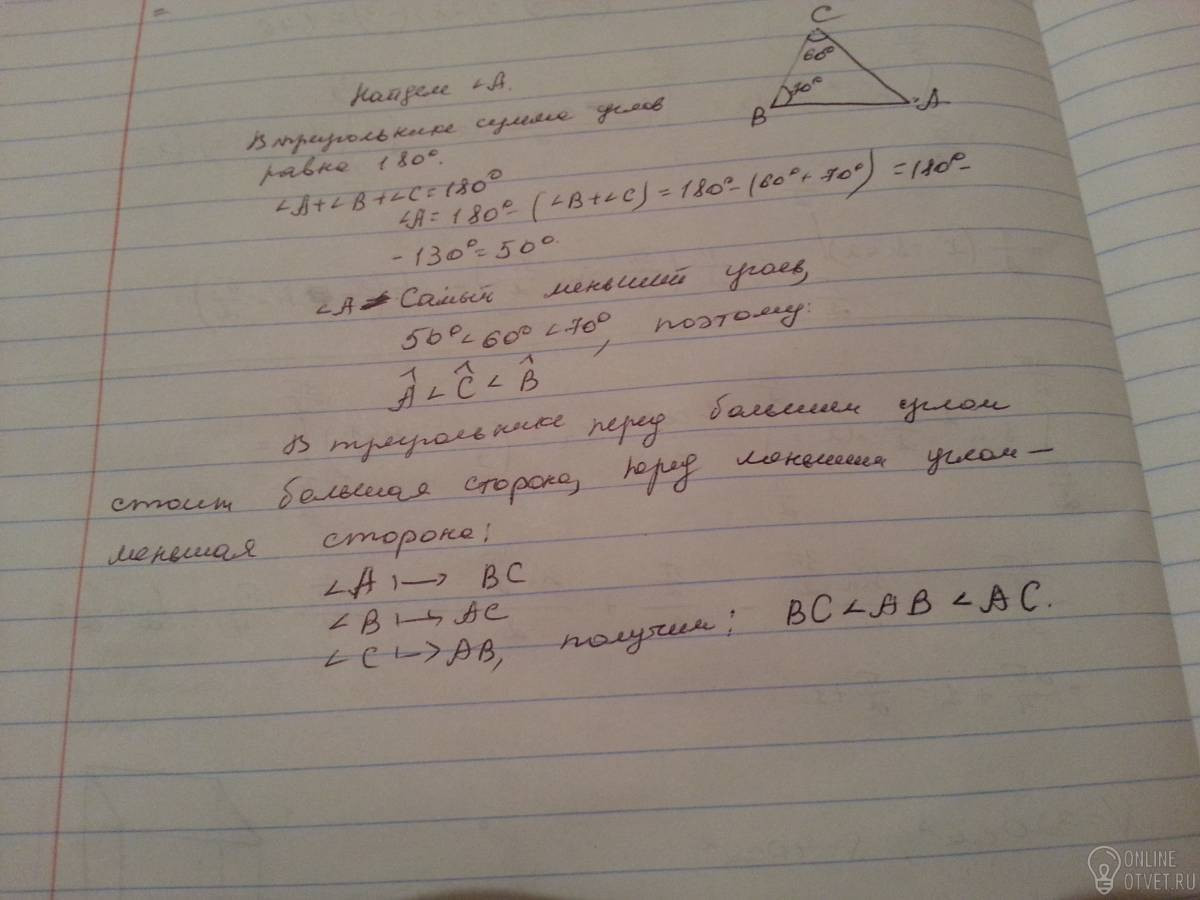 =
C
60°
70°
B
A
Найдем ∠A.
В треугольнике сумма углов
равна 180°.
∠A+∠B+∠C=180°
∠A=180°-(∠B+∠C)=180°-(60°+70°)=180°-
-130°=50°.
∠A Самый меньший угол,
50°<60°<70°, поэтому:
Â<Ĉ<B̂
В треугольнике перед большим углом
стоит большая сторона, перед меньшим углом —
меньшая сторона:
∠A ↦ BC
∠B ↦ AC
∠C ↦ AB, получим: BC<AB<AC.
ONLINE
OTVET.RU